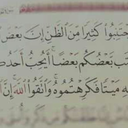 جْتَنِبُوا كَثِيرًا مِّنَ ٱلظَّنِّ إِنَّ بَعْضَ
ب بَّعْضُكُم بَعْضًا أَيُحِبُّ أَحَدُ
هِ مَيْتًا فَكَرِهْتُمُوهُ وَٱتَّقُوا ٱللَّهَ إِنَّ